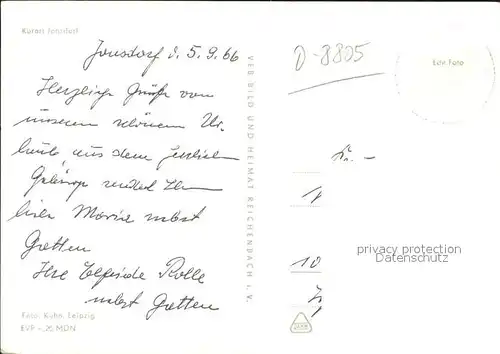 Kurort Jonsdorf
Jonsdorf d. 5.9.66
Herzliche Grüße von
unserem schönen Ur-
laub, aus dem
Gebirge sendet Ihnen
Maria nebst
Gatten
Ihre Rolle
nebst Gatten
Foto: Kuhn, Leipzig
EVP -,25 MDN
VEB BILD UND HEIMAT REICHENBACH i. V.
D-8805
Edit Foto
privacy protection
Datenschutz
10